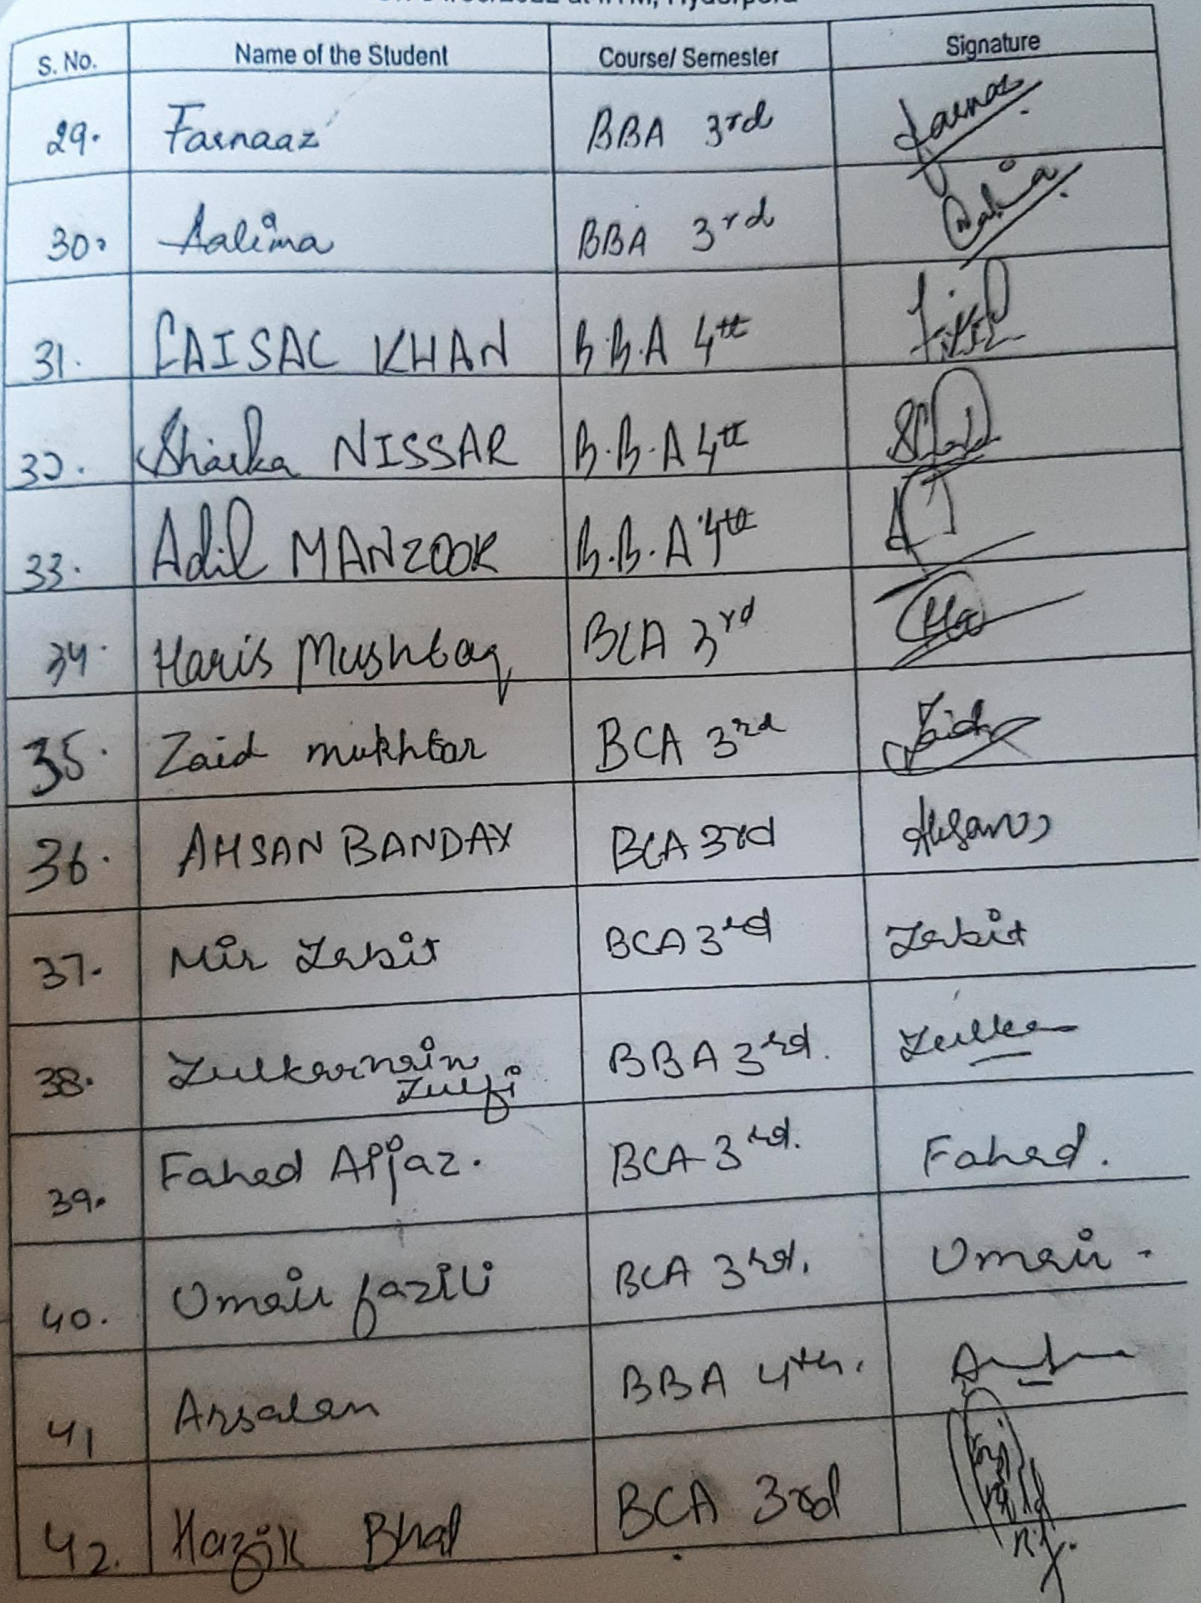 S. No. Name of the Student Course/ Semester Signature
29. Farnaaz BBA 3rd Farnaz
30. Aalima BBA 3rd
31. FAISAL KHAN B.B.A 4th
32. Shaika NISSAR B.B.A 4th
33. Adil MANZOOR B.B.A 4th
34. Haris Mushtaq BCA 3rd
35. Zaid mukhtar BCA 3rd Zaid
36. AHSAN BANDAY BCA 3rd Ahsan
37. Mir Zabit BCA 3rd Zabit
38. Zulkarnain BBA 3rd.
Zulfi
39. Fahed Aijaz. BCA 3rd. Fahed.
40. Umair fazili BCA 3rd. Umair.
41 Arsalan BBA 4th.
42. Hazik Bhat BCA 3rd